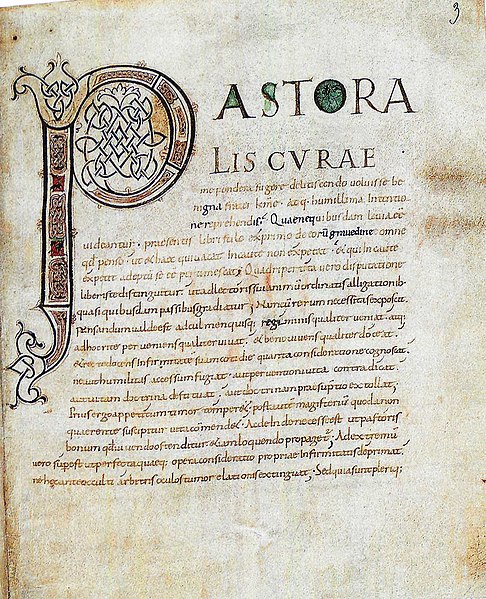 3
PASTORA
LIS CVRAE
me pondera fugere delitiscendo voluisse be
nigna frater kme. atq; humillima intentio
ne reprehendis; Quae ne quibusdam leuia ce
uideantur. praesentis libri stilo exprimo de eorũ grauedine omne
qd penso. ut & haec qui uacat incaute non expetat. & qui incaute
expetit adeptũ se ee pertimescat; Quadripertita uero disputatione
liber iste distinguitur. ut ad lectoris sui animũ ordinatis alligationib
quasi quibusdam passibus gradiatur; Nam cũ rerum necessitas exposcit.
pensandum ualde est ad culmen quisq; regiminis qualiter ueniat. atq;
ad hoc rite perueniens qualiter uiuat. & bene uiuens qualiter doceat.
& recte docens infirmitatẽ suam cotidie quanta consideratione cognoscat.
ne aut humilitas accessum fugiat. aut peruentioni uita contradicat.
aut uitam doctrina destituat. aut doctrinam praesuptio extollat;
Prius ergo appetitum timor temperet; post aute magisterium quod a non
quaerente suscipitur uita cõmendet. Ac deinde necesse est ut pastoris
bonum qd uiuendo ostenditur & iam loquendo propaget; Ad extremũ
uero supest ut perfecta quaeq; opera consideratio propriae infirmitatis deprimat.
ne hęc ante occulti arbitris oculos tumor elationis extinguat; Sed quia sunt pleriq;